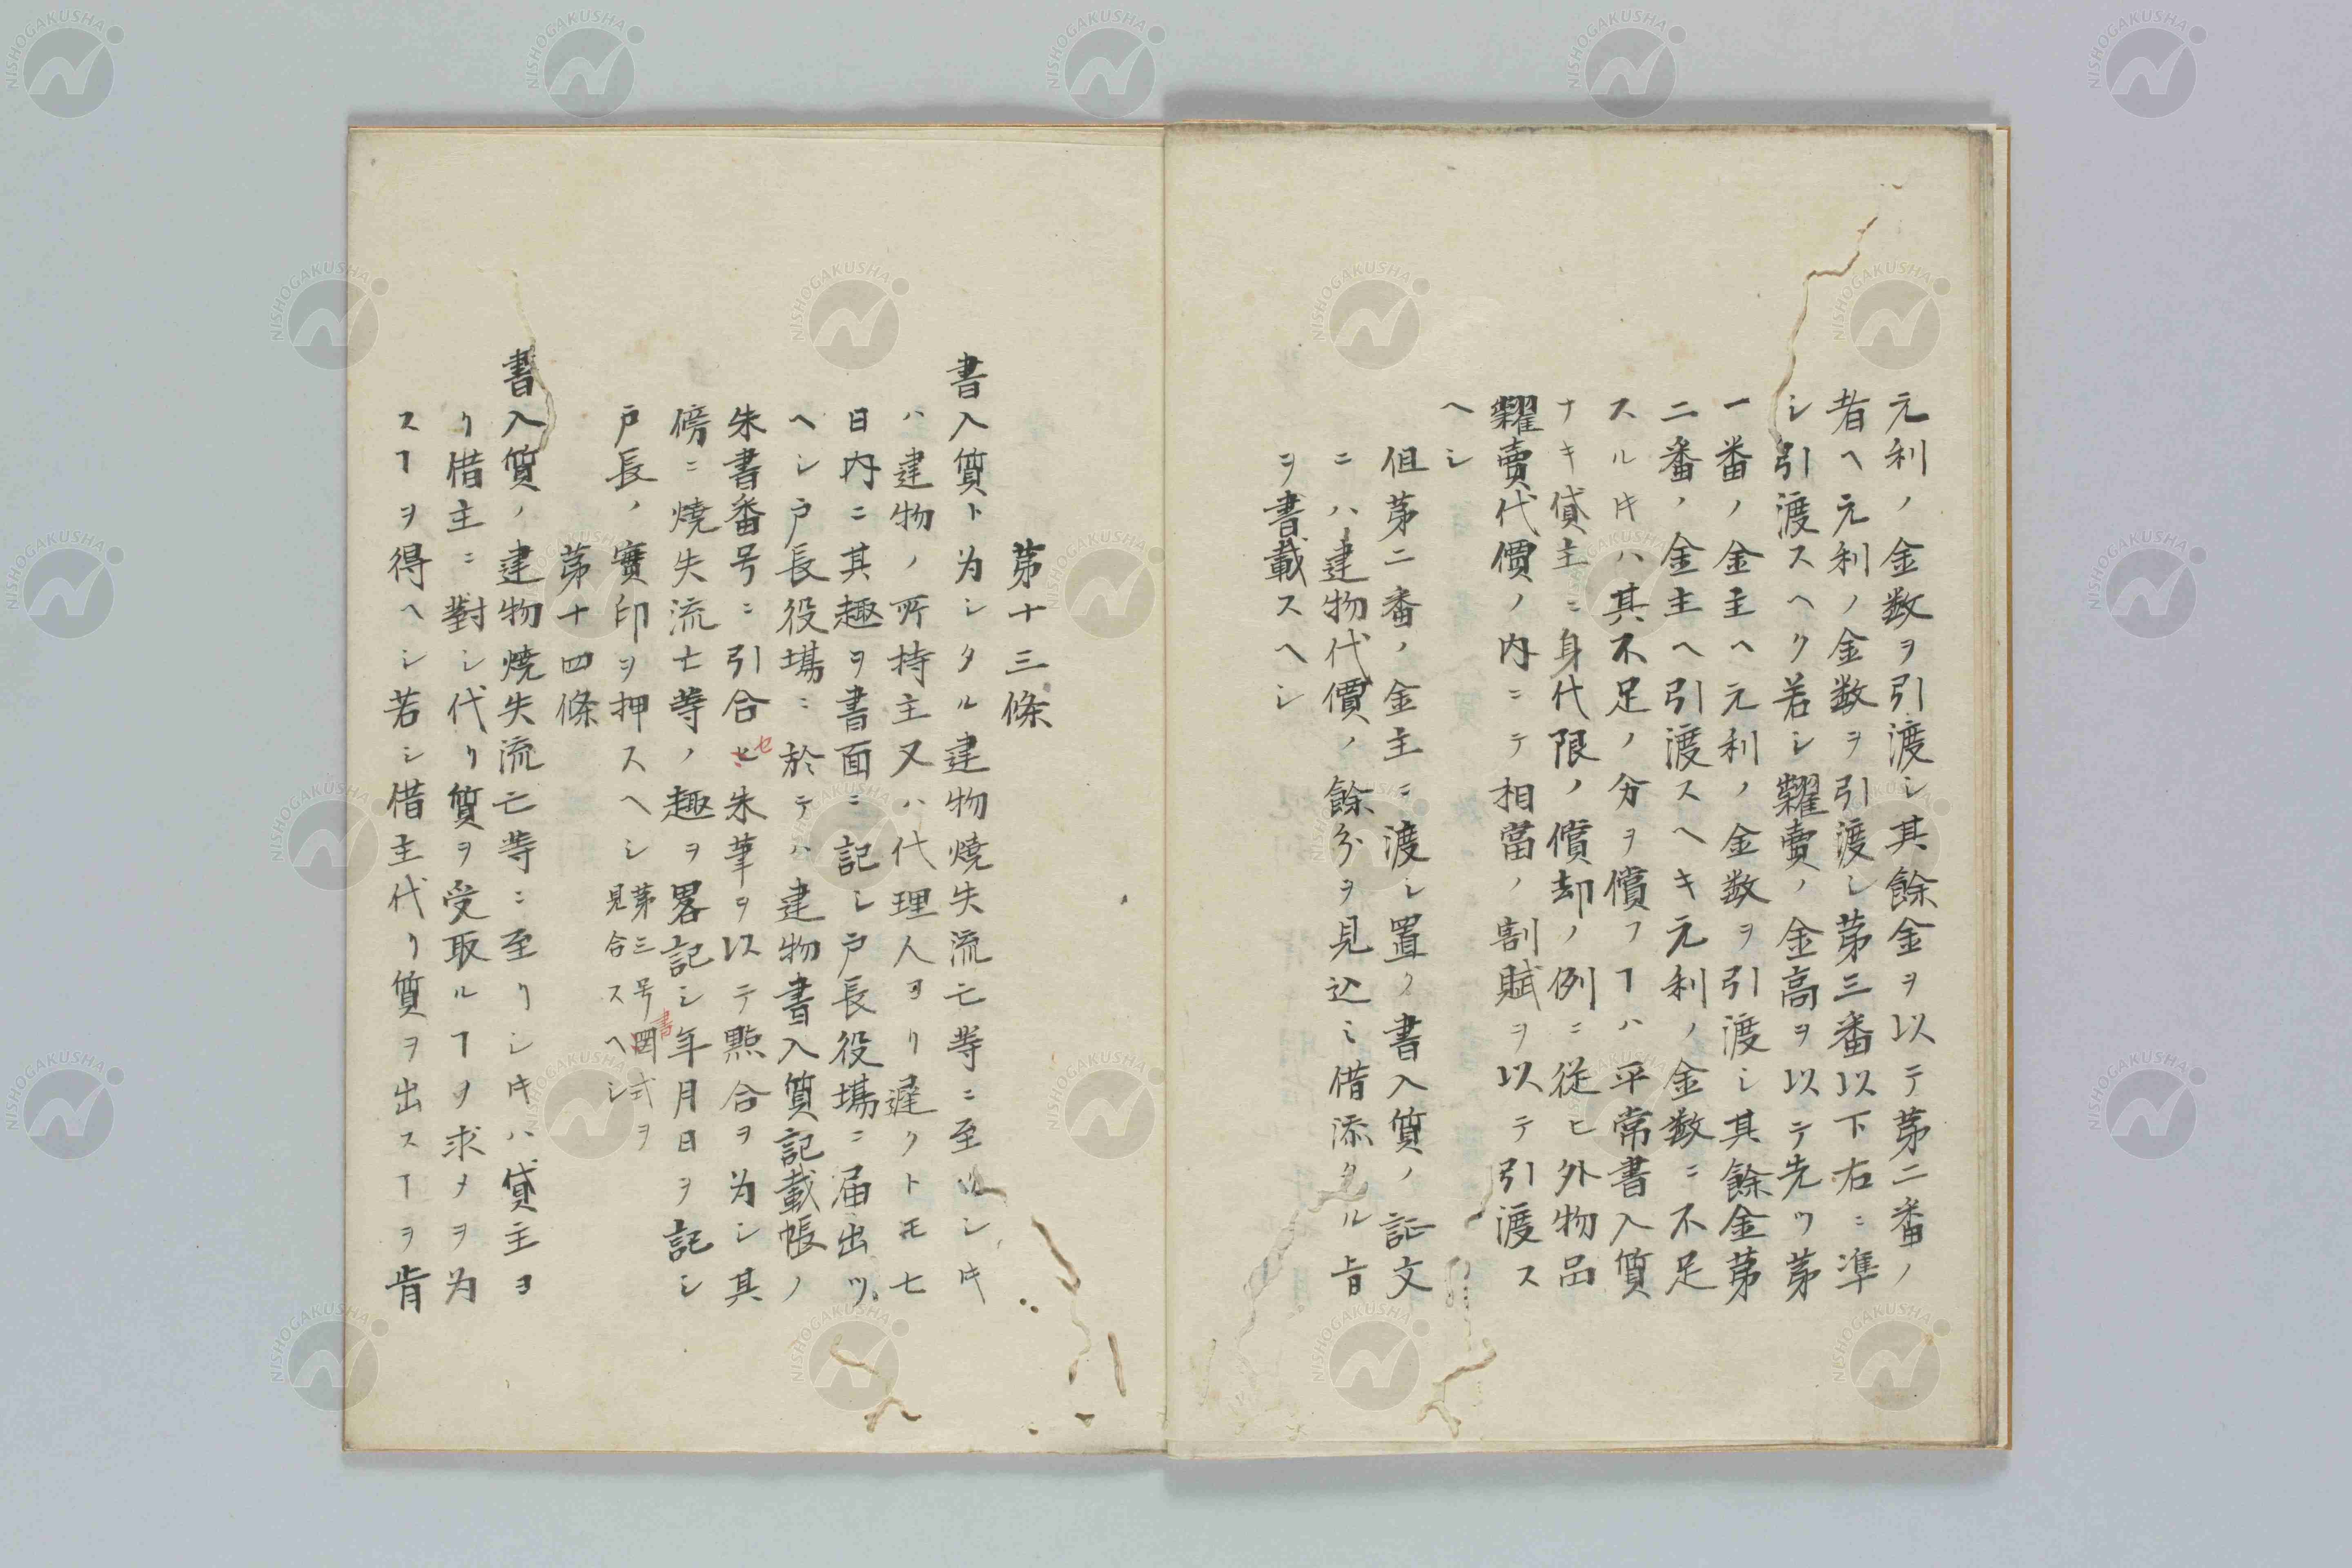 元利ノ金数ヲ引渡シ其餘金ヲ以テ苐二番ノ
者ヘ元利ノ金数ヲ引渡シ苐三番以下右ニ準
シ引渡スヘク若シ糶賣ノ金高ヲ以テ先ツ苐
一番ノ金主ヘ元利ノ金数ヲ引渡シ其餘金苐
二番ノ金主ヘ引渡スヘキ元利ノ金数ニ不足
スルキハ其不足ノ分ヲ償フヿハ平常書入質
ナキ貸主ニ身代限ノ償却ノ例ニ従ヒ外物品
糶賣代價ノ内ニテ相當ノ割賦ヲ以テ引渡ス
ヘシ
但苐二番ノ金主ニ渡シ置ク書入質ノ証文
ニハ建物代價ノ餘分ヲ見込ミ借添タル旨
ヲ書載スヘシ
苐十三條
書入質ト为シタル建物燒失流亡等ニ至リシキ
ハ建物ノ所持主又ハ代理人ヨリ遅クトモ七
日内ニ其趣ヲ書面ニ記シ戸長役塲ニ届出ツ
ヘシ戸長役塲ニ於テハ建物書入質記載帳ノ
朱書番号ニ引合セ朱筆ヲ以テ㸃合ヲ为シ其
傍ニ燒失流亡等ノ趣ヲ畧記シ年月日ヲ記シ
戸長ノ實印ヲ押スヘシ苐三号書式ヲ見合スヘシ
苐十四條
書入質ノ建物燒失流亡等ニ至リシキハ貸主ヨ
リ借主ニ對シ代リ質ヲ受取ルヿヲ求メヲ为
スヿヲ得ヘシ若シ借主代リ質ヲ出スヿヲ肯
NISHOGAKUSHA